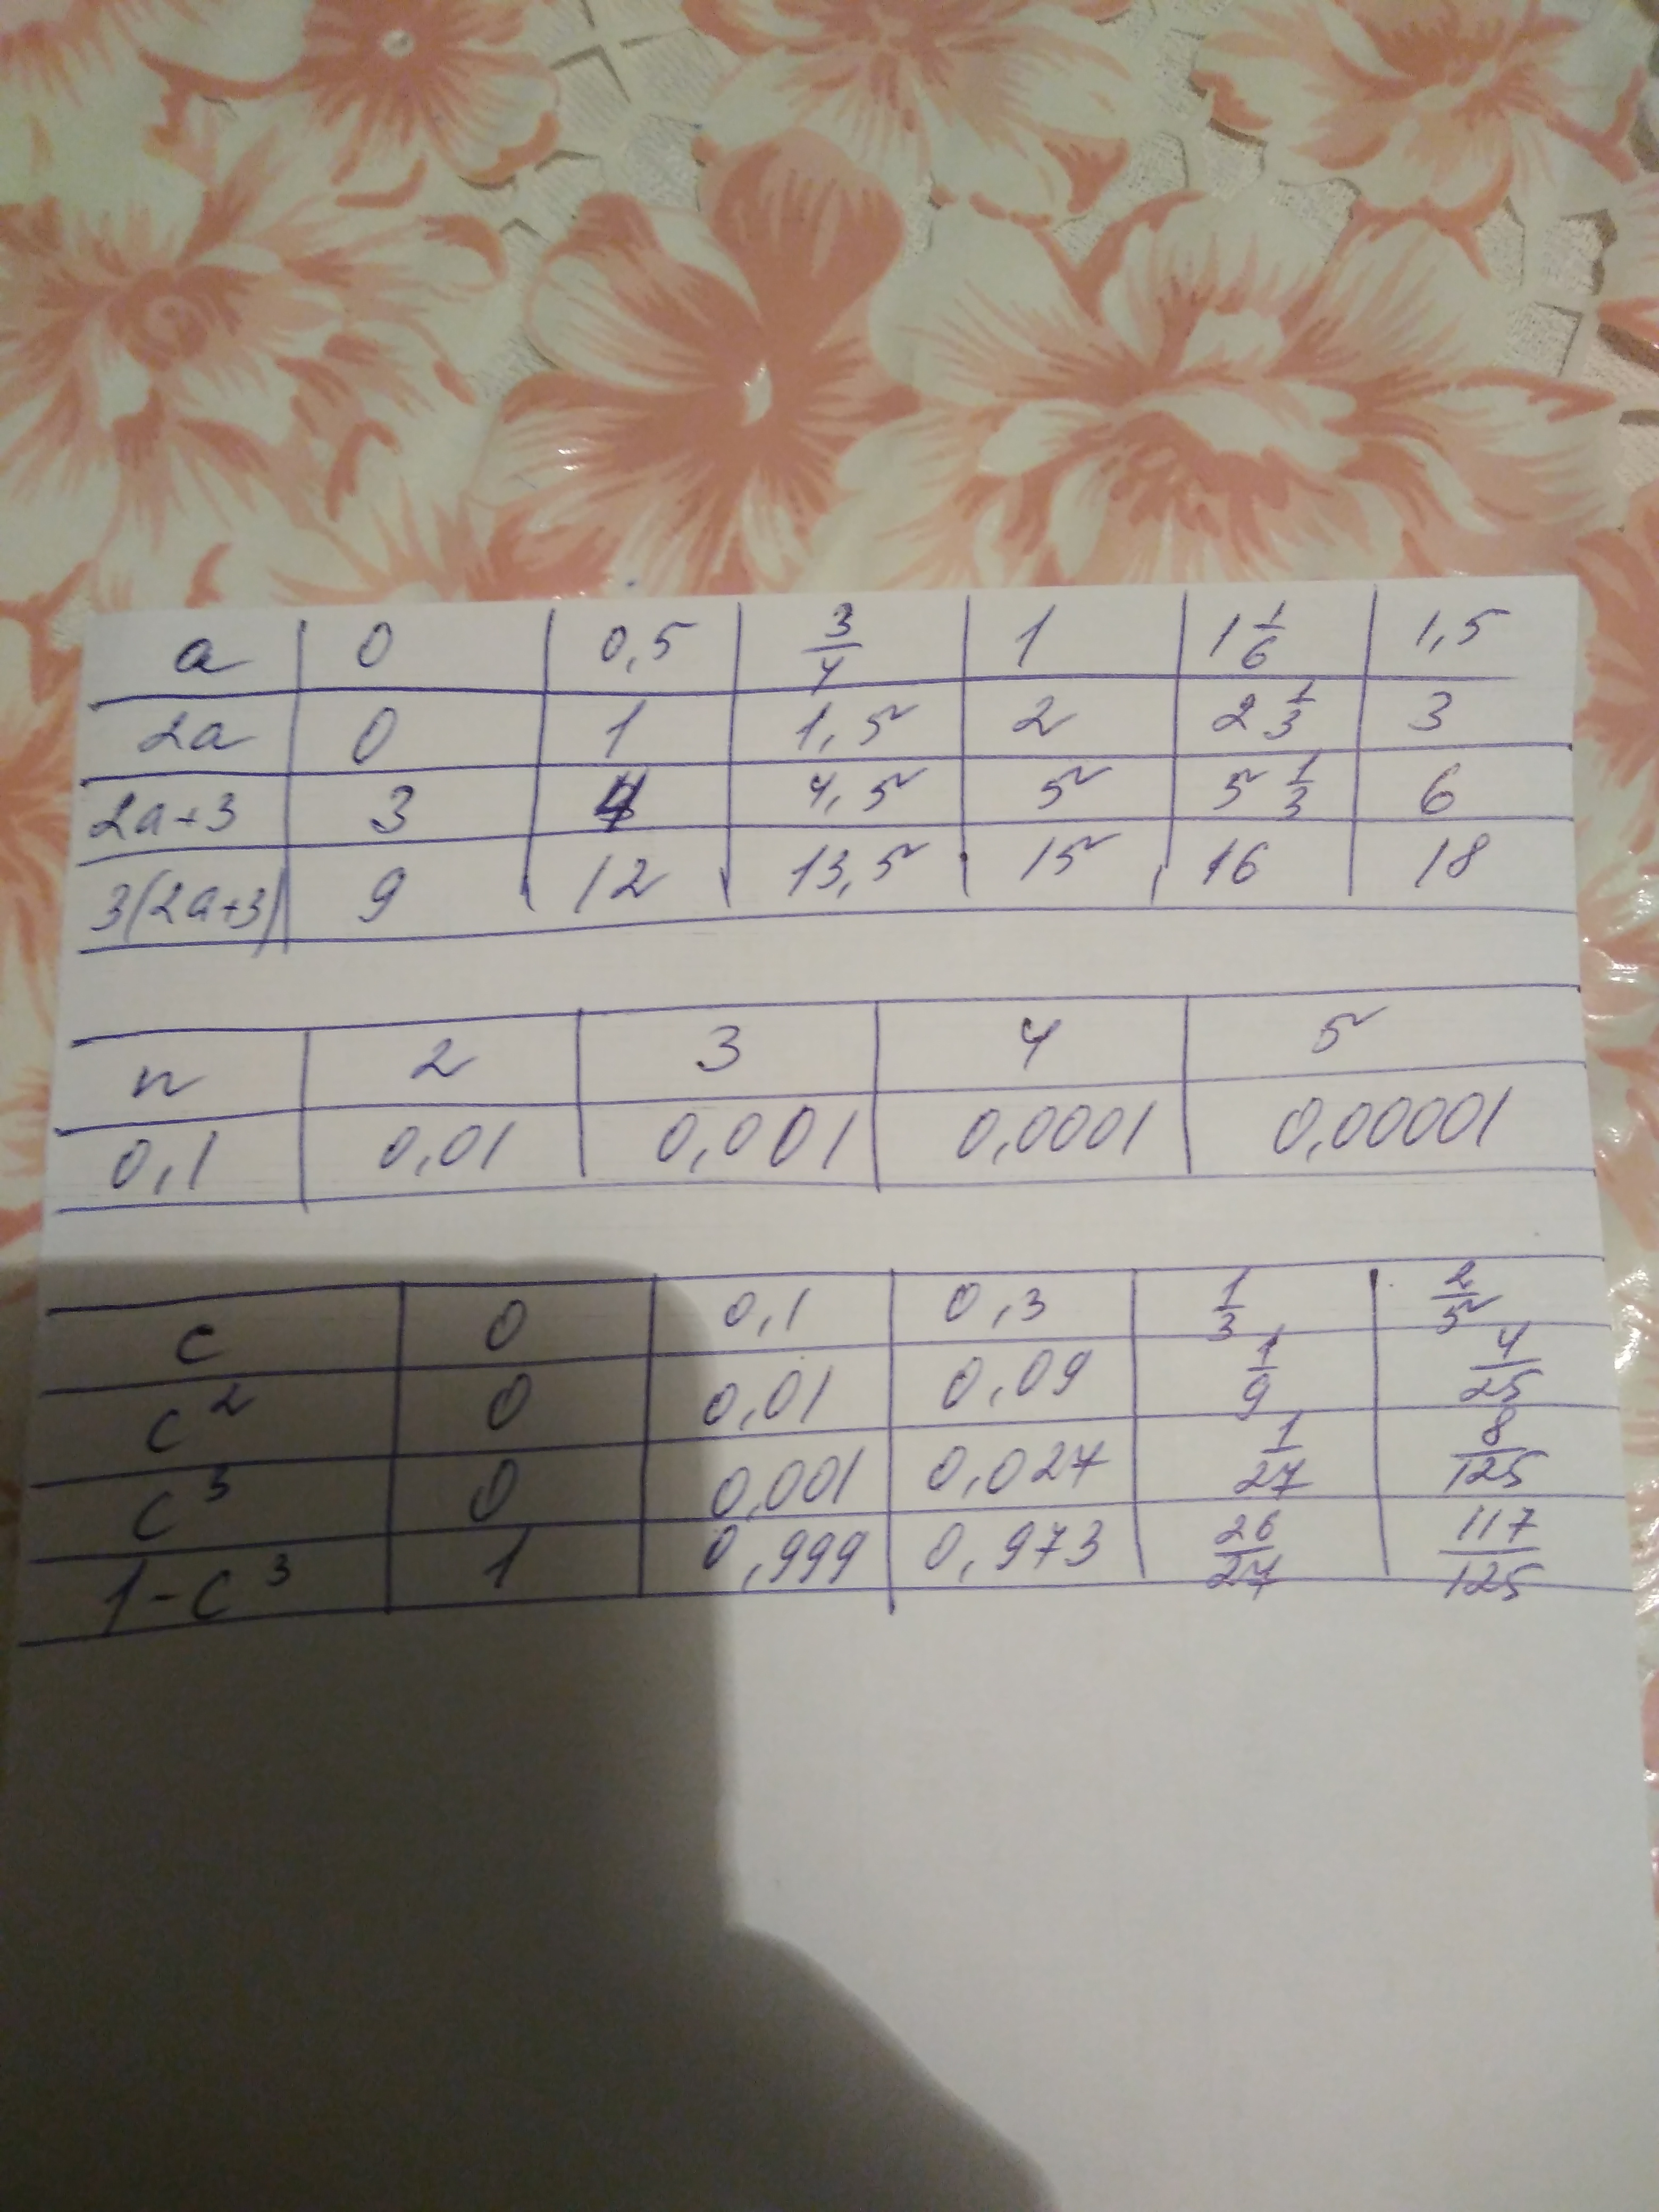 a 0 0,5 3/4 1 1 1/6 1,5
2a 0 1 1,5 2 2 1/3 3
2a+3 3 4 4,5 5 5 1/3 6
3(2a+3) 9 12 13,5 15 16 18
n 2 3 4 5
0,1 0,01 0,001 0,0001 0,00001
c 0 0,1 0,3 1/3 2/5
c² 0 0,01 0,09 1/9 4/25
c³ 0 0,001 0,027 1/27 8/125
1-c³ 1 0,999 0,973 26/27 117/125